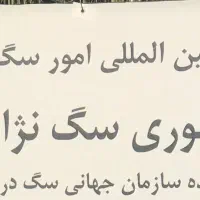 ین المللی امور سگ
وری سگ نژا
ده سازمان جهانی سگ در